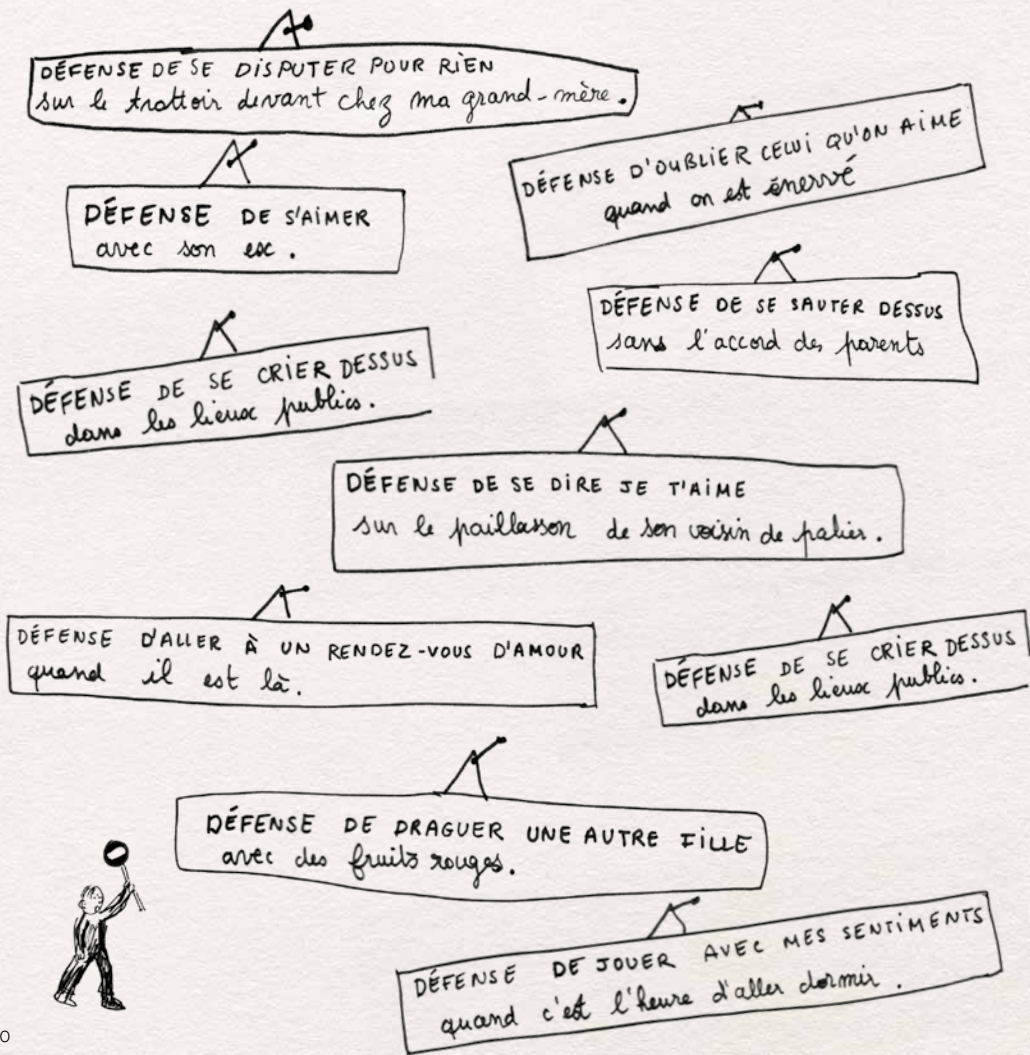 DÉFENSE DE SE DISPUTER POUR RIEN
sur le trottoir devant chez ma grand-mère.
DÉFENSE D'OUBLIER CELUI QU'ON AIME
quand on est énervé
DÉFENSE DE S'AIMER
avec son ex.
DÉFENSE DE SE SAUTER DESSUS
sans l'accord des parents
DÉFENSE DE SE CRIER DESSUS
dans les lieux publics.
DÉFENSE DE SE DIRE JE T'AIME
sur le paillasson de son voisin de palier.
DÉFENSE D'ALLER À UN RENDEZ-VOUS D'AMOUR
quand il est là.
DÉFENSE DE SE CRIER DESSUS
dans les lieux publics.
DÉFENSE DE DRAGUER UNE AUTRE FILLE
avec des fruits rouges.
DÉFENSE DE JOUER AVEC MES SENTIMENTS
quand c'est l'heure d'aller dormir.